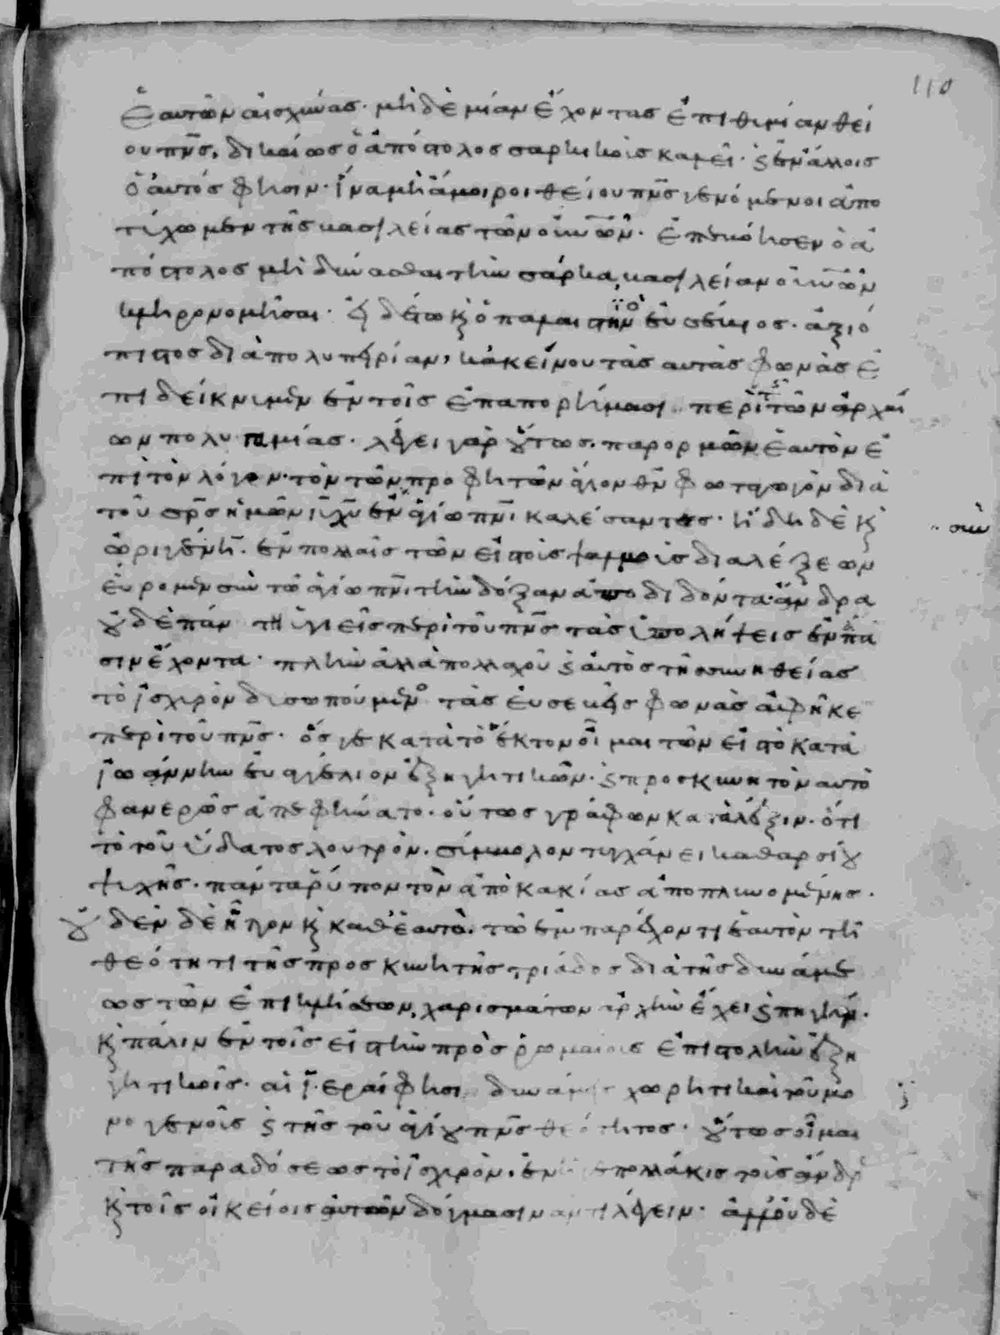 110
ἑαυτῶν αἰσχύνας· μηδὲ μίαν ἔχοντας ἐπιθυμίαν θεί
ου πν̅ς, δικαίως ὁ ἀπόστολος σαρκικοὺς καλεῖ· κ(αὶ) ἐν ἄλλοις
ὁ αὐτός φησιν· ἵνα μὴ ἄμοιροι θείου πν̅ς γενόμενοι ἀπο
τύχωμεν τῆς βασιλείας τῶν οὐν̅ῶν· ἐπεβόησεν ὁ ἀ
πόστολος μὴ δύνασθαι τὴν σάρκα, βασιλείαν οὐν̅ῶν
κληρονομῆσαι· κ(αὶ) ὁ παλαιστηνὸς εὐσέβιος· ἀξιό
πιστος διὰ πολυπειρίαν, κἀκείνου τὰς αὐτὰς φωνὰς ἐ
πιδείκνυμεν ἐν τοῖς ἐπαπορήμασι περὶ τῆς τῶν ἀρχαί
ων πολυγαμίας· λέγει γὰρ οὕτως· παρορμῶν ἑαυτὸν ἐ
πὶ τὸν λόγον· τὸν τῶν προφητῶν ἅγιον θν̅ φωταγωγὸν διὰ
τοῦ σρ̅ς ἡμῶν ιυ χυ ἐν ἁγίω πν̅ι καλέσαντες· ἤδη δὲ κ(αὶ)
σὺν
ὠριγένην ἐν πολλαῖς τῶν εἰς τοὺς ψαλμοὺς διαλέξεων
εὕρομεν σὺν τῶ ἁγίω πν̅ι τὴν δόξαν ἀποδιδόντα· ἄνδρα
οὐδὲ πάνυ τι ὑγιεῖς περὶ τοῦ πν̅ς τὰς ὑπολήψεις ἐν πᾶ
σιν ἔχοντα· πλὴν ἀλλὰ πολλαχοῦ κ(αὶ) αὐτὸς τῆς συνηθείας
τὸ ἰσχυρὸν δυσωπούμενος τὰς εὐσεβεῖς φωνὰς ἀφῆκε
περὶ τοῦ πν̅ς· ὅς γε κατὰ τὸ ἕκτον οἶμαι τῶν εἰς τὸ κατὰ
ἰωάννην εὐαγγέλιον ἐξηγητικῶν· κ(αὶ) προσκυνητὸν αὐτὸ
φανερῶς ἀπεφήνατο· οὕτως γράφων κατὰ λέξιν· ὅτι
τὸ τοῦ ὕδατος λουτρὸν, σύμβολον τυγχάνει καθαρσίου
ψυχῆς· πάντα ῥύπον τὸν ἀπὸ κακίας ἀποπλυνομένης·
οὐδὲν δὲ ἧττον κ(αὶ) καθ' ἑαυτὸ, τῶ ἐμπαρέχοντι ἑαυτὸν τῆ
θεότητι τῆς προσκυνητῆς τριάδος διὰ τῆς δυνάμε
ως τῶν ἐπικλήσεων, χαρισμάτων ἀρχὴν ἔχει κ(αὶ) πηγήν·
κ(αὶ) πάλιν ἐν τοῖς εἰς τὴν πρὸς ῥωμαίους ἐπιστολὴν ἐξη
γητικοῖς· αἱ ἱεραί φησι δυνάμεις χωρητικαὶ τοῦ μο
νογενοῦς κ(αὶ) τῆς τοῦ ἁγίου πν̅ς θεότητος· οὕτως οἶμαι
τῆς παραδόσεως τὸ ἰσχυρὸν, ἐν πολλάκις τοὺς ἄνδρ
κ(αὶ) τοῖς οἰκείοις αὐτῶν δόγμασιν ἀντιλέγειν· ἀλλ' οὐδὲ